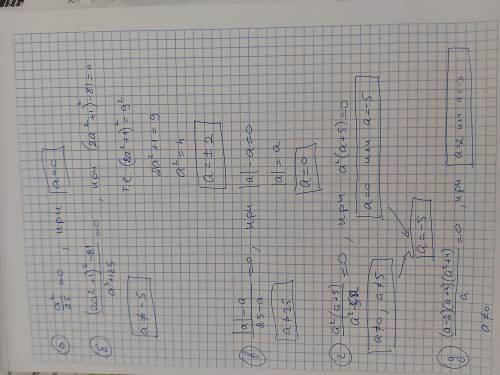 а) a²/25 = 0, при a=0
б) ((2a²+1)²-81)/(a³+125) = 0, при (2a²+1)²-81=0
т.е (2a²+1)²=9²
2a²+1=9
a²=4
a=±2
a≠-5
в) (|a|-a)/(25-a) = 0, при |a|-a=0
|a|=a
a=0
a≠25
г) a²(a+5)/ = 0, при a²(a+5)=0
a=0 или a=-5
a≠0, a≠5
a=-5
д) (a-2)(a+3)(a²+1)/a = 0, при a=2 или a=-3
a≠0